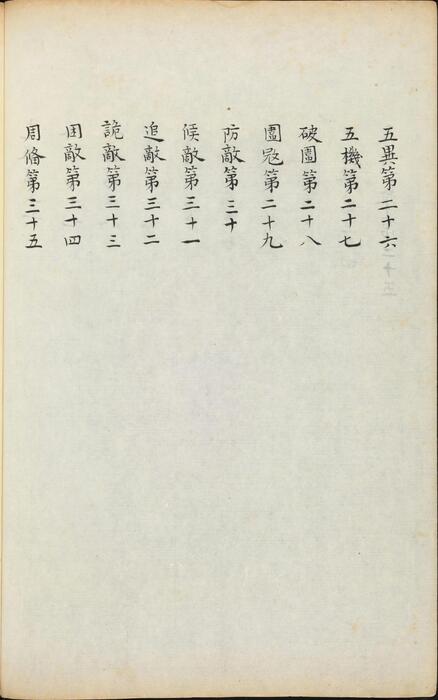 五異第二十六
五機第二十七
破圍第二十八
圍㓂第二十九
防敵第三十
候敵第三十一
追敵第三十二
詭敵第三十三
困敵第三十四
周俻第三十五